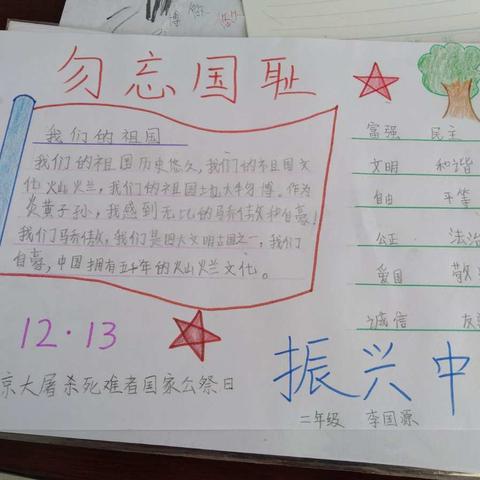 勿忘国耻
我们的祖国
我们的祖国历史悠久,我们的祖国文
化灿烂,我们的祖国土地大牛勿博。作为
炎黄子孙,我感到无比的骄傲和自豪!
我们骄傲,我们是四大文明古国之一,我们
自豪,中国拥有五千年的灿烂文化。
富强 民主
文明 和谐
自由 平等
公正 法治
爱国 敬
诚信 友
12·13
京大屠杀死难者国家公祭日
振兴中
二年级 李国源